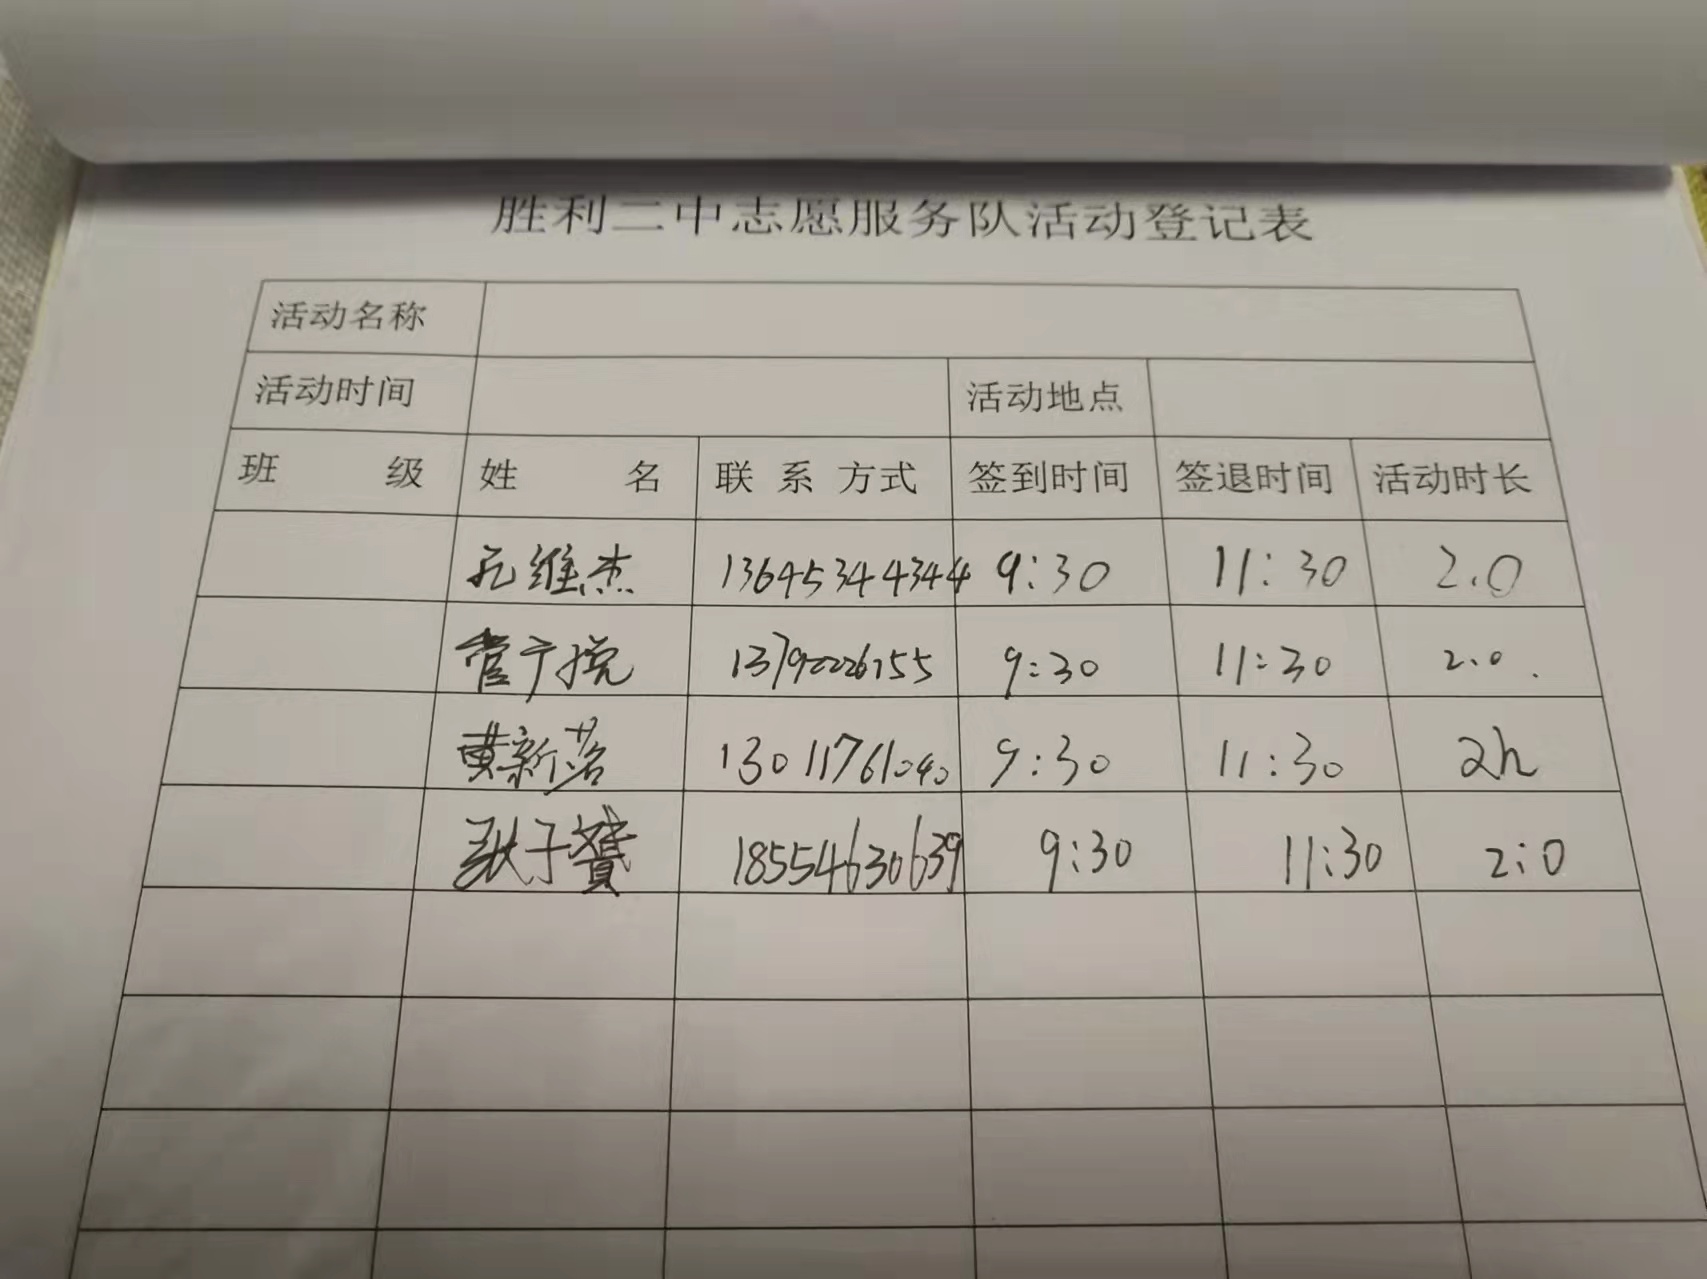 胜利二中志愿服务队活动登记表
活动名称
活动时间 活动地点
班 级 姓 名 联 系 方式 签到时间 签退时间 活动时长
孔维杰 13645344344 9:30 11:30 2.0
管于 9:30 11:30 2.0
黄新茗 13011761040 9:30 11:30 2h
子 18554630639 9:30 11:30 2:0